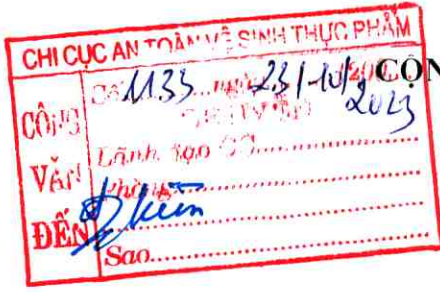 CHI CỤC AN TOÀN VỆ SINH THỰC PHẨM
CÔNG VĂN ĐẾN
Số 1133 ngày 23/10/2023
Lãnh đạo CC
Phòng
Sao
CỘN